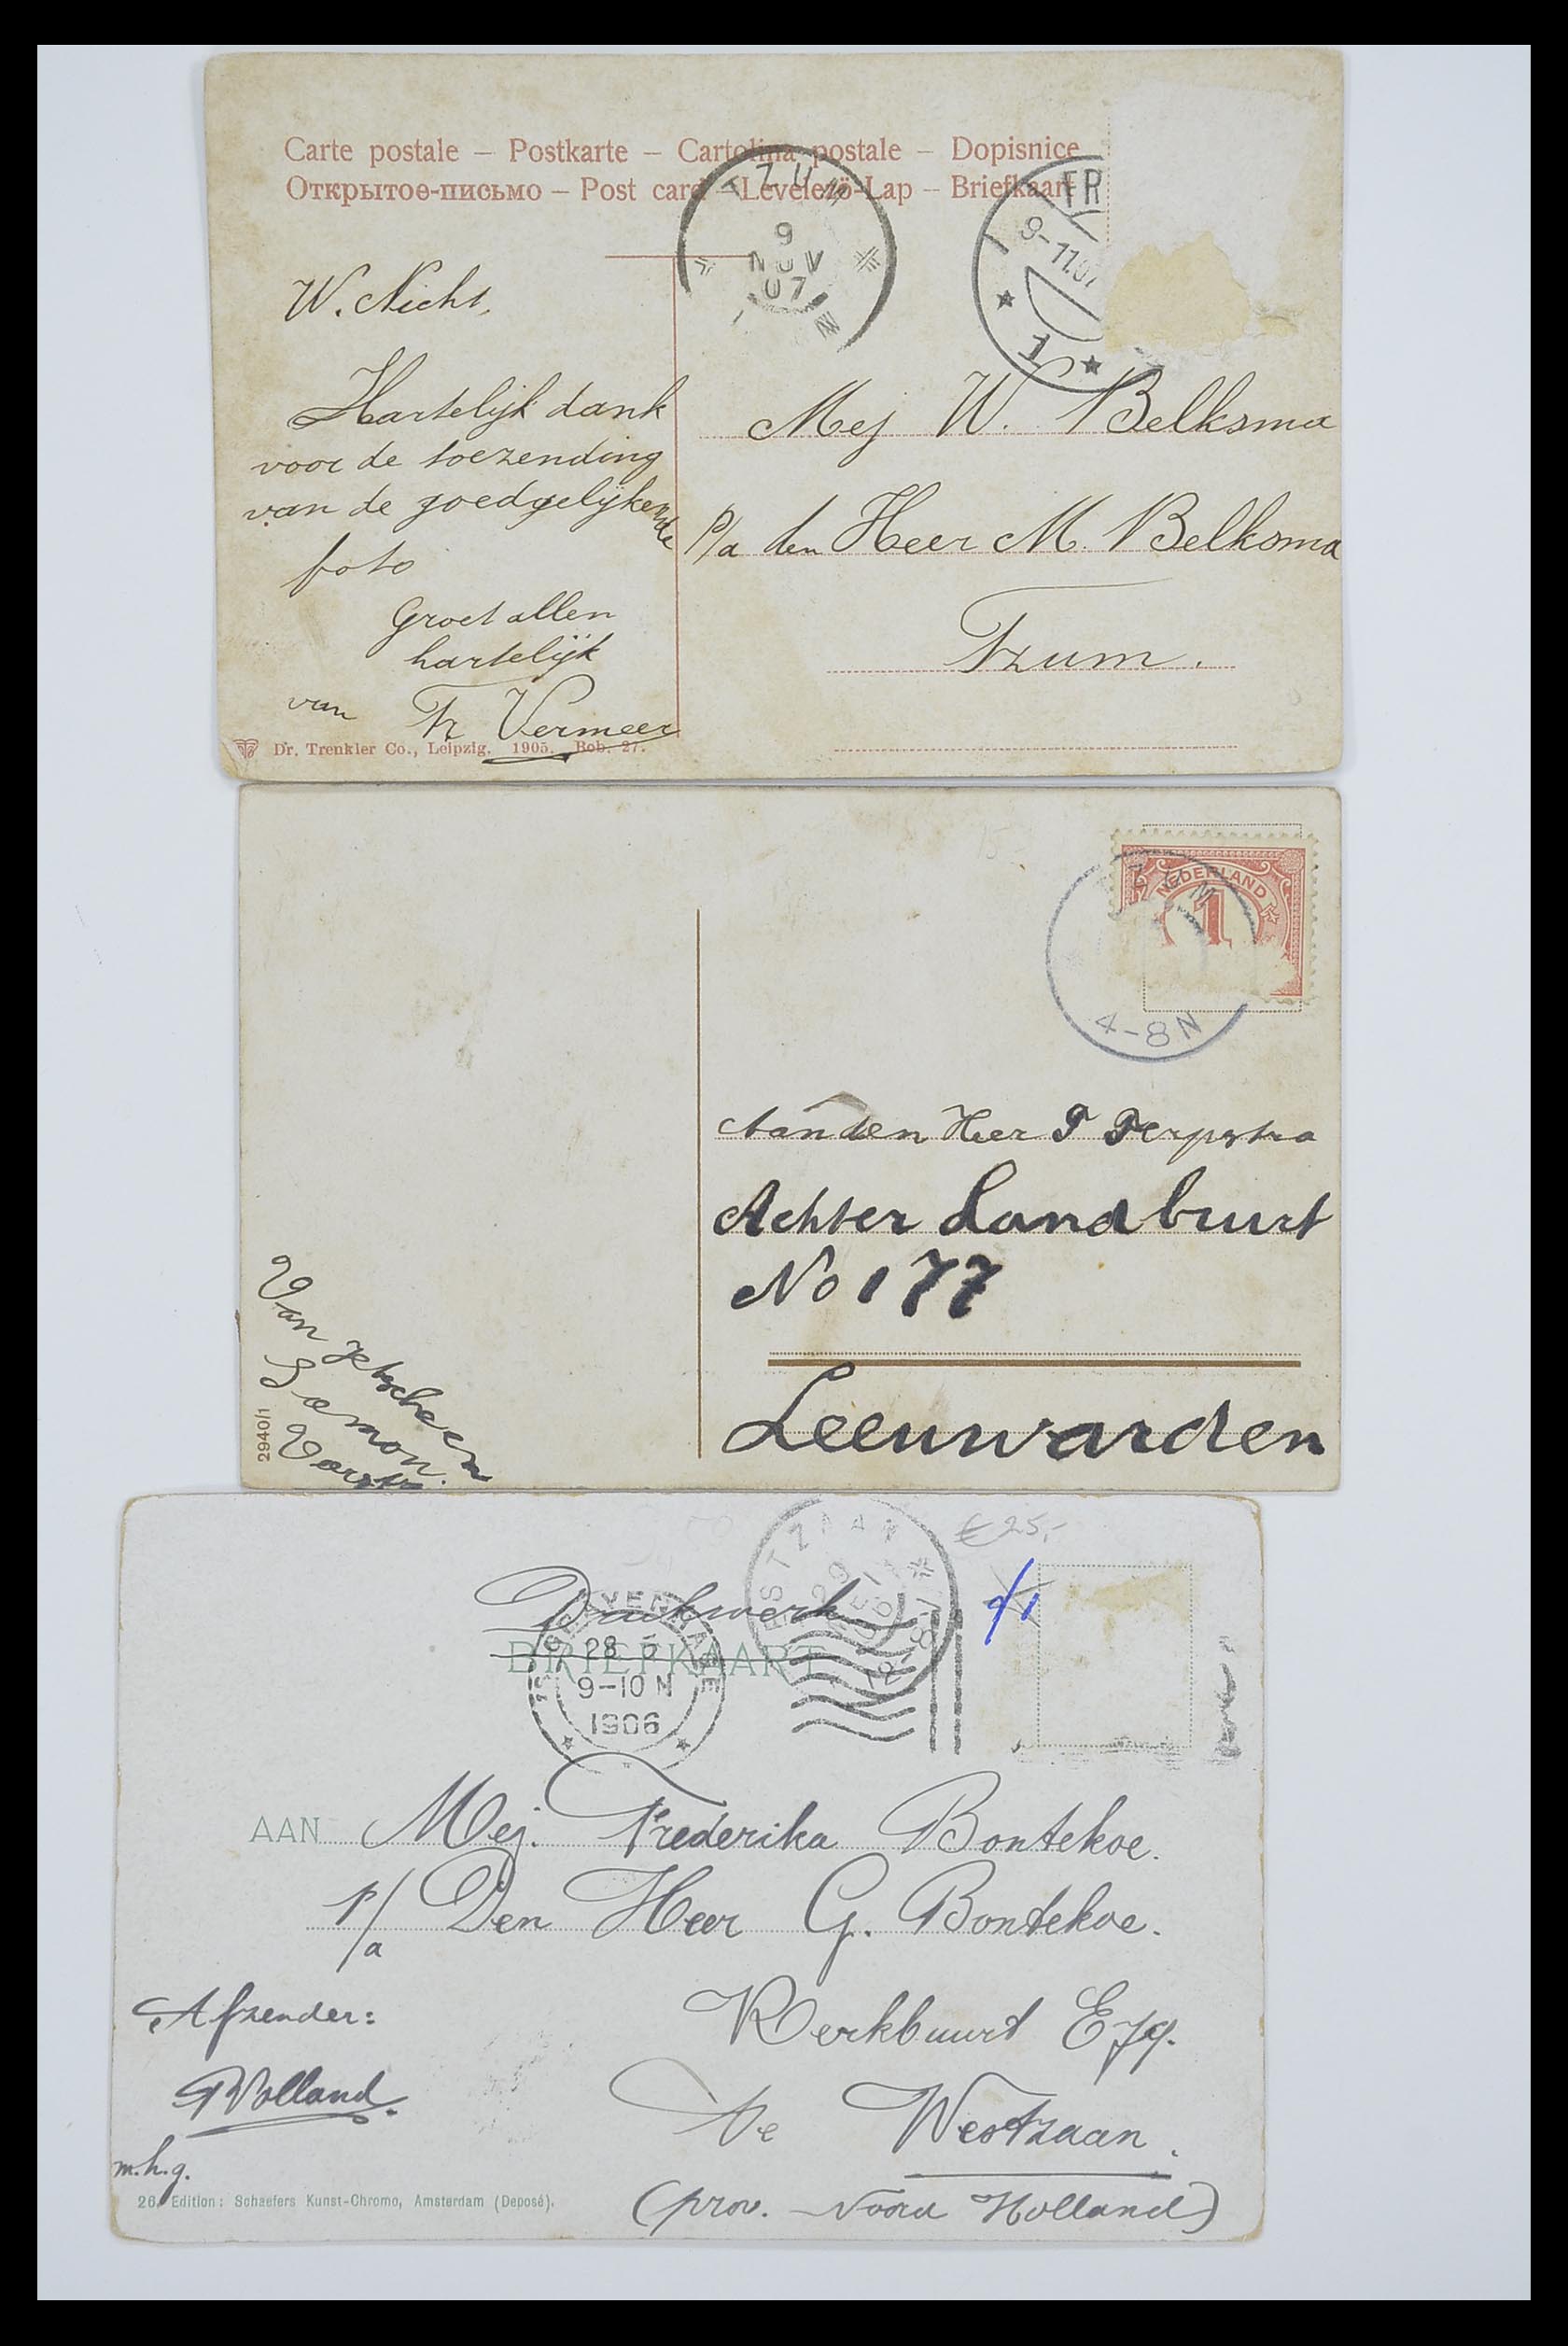 Carte postale – Postkarte – Cartolina postale – Dopisnice
Открытое-письмо – Post card – Levelező-Lap – Briefkaart
TZUM
9
NOV
07
FR
9-11.07
1
W. Nicht,
Hartelijk dank
voor de toezending
van de goedgelijkende
foto
Groet allen
hartelijk
van Tr Vermeer
Mej W. Belksma
P/a den Heer M. Belksma
Tzum.
Dr. Trenkler Co., Leipzig. 1905. Bob. 27.
NEDERLAND
1
TZUM
4-8N
Aan den Heer T Terpstra
Achter Landbuurt
No 177
Leeuwarden
Van
2940/1
€ 25,-
WESTZAAN
Drukwerk
BRIEFKAART
'S GRAVENHAGE
28 5
9-10 N
1906
AAN Mej. Frederika Bontekoe.
p/a Den Heer G. Bontekoe.
Kerkbuurt E79.
Te Westzaan.
(prov. Noord Holland)
Afzender:
m.h.g.
26. Edition: Schaefers Kunst-Chromo, Amsterdam (Deposé).